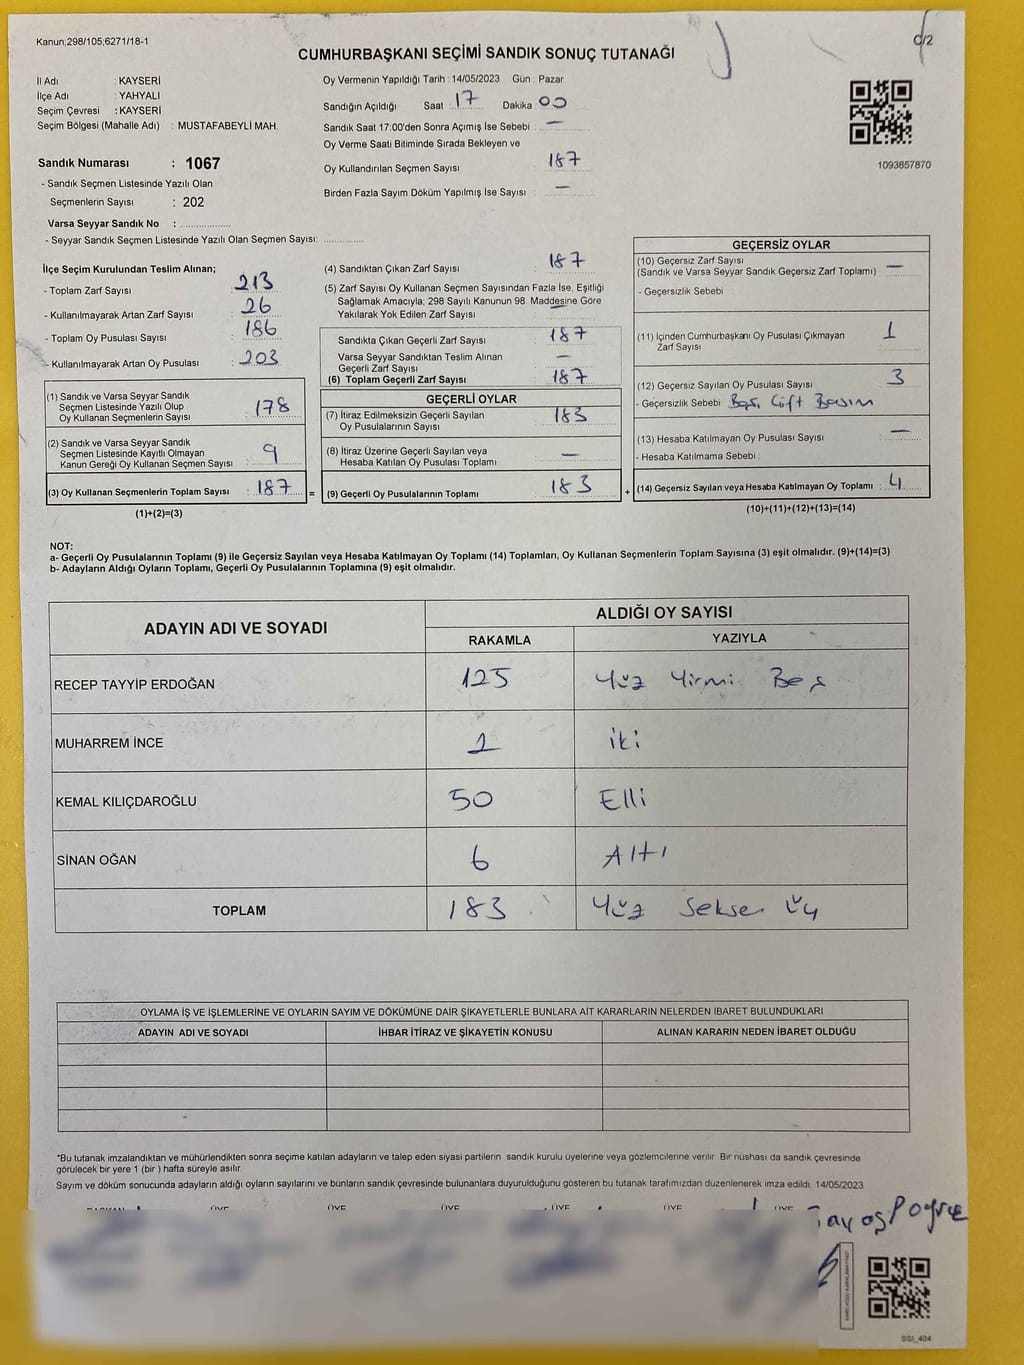 Kanun;298/105;6271/18-1
C/2
CUMHURBAŞKANI SEÇİMİ SANDIK SONUÇ TUTANAĞI
İl Adı : KAYSERİ
İlçe Adı : YAHYALI
Seçim Çevresi : KAYSERİ
Seçim Bölgesi (Mahalle Adı) : MUSTAFABEYLİ MAH.
Sandık Numarası : 1067
- Sandık Seçmen Listesinde Yazılı Olan
Seçmenlerin Sayısı : 202
Varsa Seyyar Sandık No :
- Seyyar Sandık Seçmen Listesinde Yazılı Olan Seçmen Sayısı:
Oy Vermenin Yapıldığı Tarih : 14/05/2023 Gün : Pazar
Sandığın Açıldığı Saat : 17 Dakika : 00
Sandık Saat 17:00'den Sonra Açımış İse Sebebi : —
Oy Verme Saati Bitiminde Sırada Bekleyen ve
Oy Kullandırılan Seçmen Sayısı : 187
Birden Fazla Sayım Döküm Yapılmış İse Sayısı : —
1093857870
İlçe Seçim Kurulundan Teslim Alınan;
- Toplam Zarf Sayısı : 213
- Kullanılmayarak Artan Zarf Sayısı : 26
- Toplam Oy Pusulası Sayısı : 186
- Kullanılmayarak Artan Oy Pusulası : 203
(1) Sandık ve Varsa Seyyar Sandık
Seçmen Listesinde Yazılı Olup
Oy Kullanan Seçmenlerin Sayısı : 178
(2) Sandık ve Varsa Seyyar Sandık
Seçmen Listesinde Kayıtlı Olmayan
Kanun Gereği Oy Kullanan Seçmen Sayısı : 9
(3) Oy Kullanan Seçmenlerin Toplam Sayısı : 187
(1)+(2)=(3)
(4) Sandıktan Çıkan Zarf Sayısı : 187
(5) Zarf Sayısı Oy Kullanan Seçmen Sayısından Fazla İse, Eşitliği
Sağlamak Amacıyla; 298 Sayılı Kanunun 98. Maddesine Göre
Yakılarak Yok Edilen Zarf Sayısı : —
Sandıkta Çıkan Geçerli Zarf Sayısı : 187
Varsa Seyyar Sandıktan Teslim Alınan
Geçerli Zarf Sayısı : —
(6) Toplam Geçerli Zarf Sayısı : 187
GEÇERLİ OYLAR
(7) İtiraz Edilmeksizin Geçerli Sayılan
Oy Pusulalarının Sayısı : 183
(8) İtiraz Üzerine Geçerli Sayılan veya
Hesaba Katılan Oy Pusulası Toplamı : —
= (9) Geçerli Oy Pusulalarının Toplamı : 183
GEÇERSİZ OYLAR
(10) Geçersiz Zarf Sayısı
(Sandık ve Varsa Seyyar Sandık Geçersiz Zarf Toplamı) : —
- Geçersizlik Sebebi :
(11) İçinden Cumhurbaşkanı Oy Pusulası Çıkmayan
Zarf Sayısı : 1
(12) Geçersiz Sayılan Oy Pusulası Sayısı : 3
- Geçersizlik Sebebi : Boş, Çift Basım
(13) Hesaba Katılmayan Oy Pusulası Sayısı : —
- Hesaba Katılmama Sebebi :
+ (14) Geçersiz Sayılan veya Hesaba Katılmayan Oy Toplamı : 4
(10)+(11)+(12)+(13)=(14)
NOT:
a- Geçerli Oy Pusulalarının Toplamı (9) ile Geçersiz Sayılan veya Hesaba Katılmayan Oy Toplamı (14) Toplamları, Oy Kullanan Seçmenlerin Toplam Sayısına (3) eşit olmalıdır. (9)+(14)=(3)
b- Adayların Aldığı Oyların Toplamı, Geçerli Oy Pusulalarının Toplamına (9) eşit olmalıdır.
ADAYIN ADI VE SOYADI
ALDIĞI OY SAYISI
RAKAMLA YAZIYLA
RECEP TAYYİP ERDOĞAN 125 Yüz Yirmi Beş
MUHARREM İNCE 2 iki
KEMAL KILIÇDAROĞLU 50 Elli
SİNAN OĞAN 6 Altı
TOPLAM 183 Yüz Seksen Üç
OYLAMA İŞ VE İŞLEMLERİNE VE OYLARIN SAYIM VE DÖKÜMÜNE DAİR ŞİKAYETLERLE BUNLARA AİT KARARLARIN NELERDEN İBARET BULUNDUKLARI
ADAYIN ADI VE SOYADI İHBAR İTİRAZ VE ŞİKAYETİN KONUSU ALINAN KARARIN NEDEN İBARET OLDUĞU
*Bu tutanak imzalandıktan ve mühürlendikten sonra seçime katılan adayların ve talep eden siyasi partilerin sandık kurulu üyelerine veya gözlemcilerine verilir. Bir nüshası da sandık çevresinde
görülecek bir yere 1 (bir ) hafta süreyle asılır.
Sayım ve döküm sonucunda adayların aldığı oyların sayılarını ve bunların sandık çevresinde bulunanlara duyurulduğunu gösteren bu tutanak tarafımızdan düzenlenerek imza edildi. 14/05/2023
BAŞKAN ÜYE ÜYE ÜYE ÜYE ÜYE
SSI_404